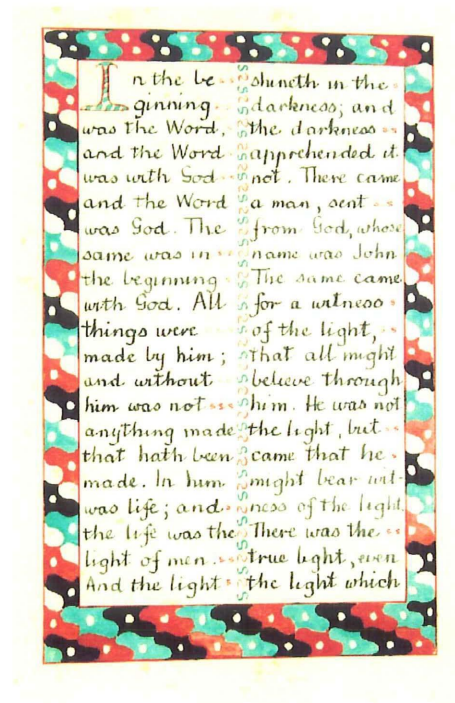 In the be
ginning
was the Word,
and the Word
was with God
and the Word
was God. The
same was in
the beginning
with God. All
things were
made by him;
and without
him was not
anything made
that hath been
made. In him
was life; and
the life was the
light of men.
And the light
shineth in the
darkness; and
the darkness
apprehended it
not. There came
a man, sent
from God, whose
name was John
The same came
for a witness
of the light,
that all might
believe through
him. He was not
the light, but
came that he
might bear wit-
ness of the light.
There was the
true light, even
the light which